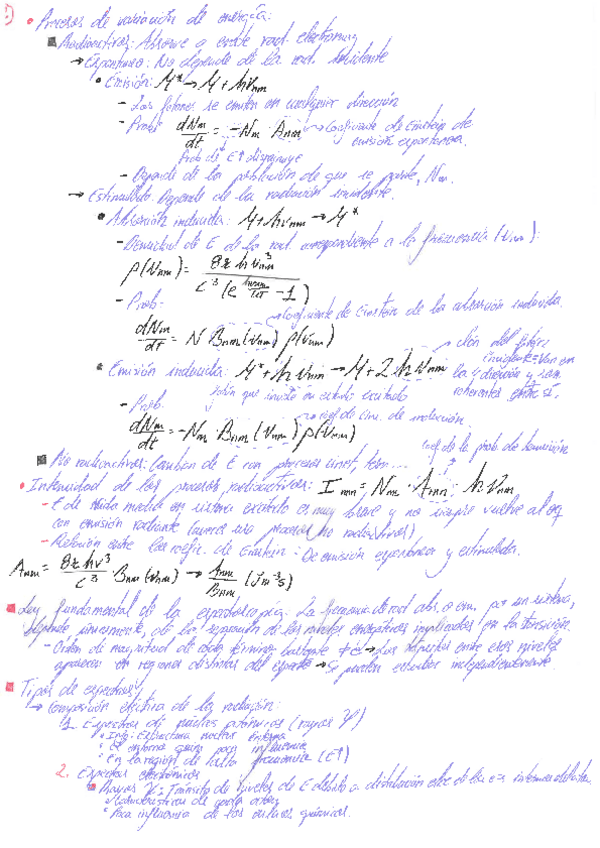 • Procesos de variación de energía:
Radiactivos: Absorve o emite rad. electromag
→ Espontáneo: No depende de la rad. incidente
• Emisión: M* → M + hνnm
- Los fotones se emiten en cualquier dirección
- Prob: dNm/dt = -Nm · Anm → Coeficiente de Einstein de
emisión espontánea.
Prob de E↑ disminuye
- Depende de la población de que se parte, Nm.
→ Estimulado: Depende de la radiación incidente.
• Absorción inducida: M + hνnm → M*
- Densidad de E de la rad. correspondiente a la frecuencia (νnm):
ρ(νnm) = 8πhν³nm / c³(e^(hνnm/kT) - 1)
- Prob.
→ Coeficiente de Einstein de la absorción inducida.
dNm/dt = N Bnm(νnm) ρ(νnm)
• Emisión inducida: M* + hνnm → M + 2hνnm
incidente
la dirección y son
coherentes entre sí.
- Prob.
dNm/dt = -Nm · Bnm(νnm) ρ(νnm)
coef de la prob. de transición
No radiactivos: Cambian de E con procesos cinet, term...
• Intensidad de los procesos radiactivos: Imn = Nm · Anm · h · νnm
- de vida media en sistema excitado es muy breve y no siempre vuelve al eq
con emisión radiante
- Relación entre los coefic. de Einstein: De emisión espontánea y estimulada.
Anm = 8πhν³/c³ · Bnm(νnm) → Anm/Bnm (Jm⁻³s)
Ley fundamental de la espectroscopía: La frecuencia de rad abs. o em. por un sistema,
depende, únicamente, de la separación de los niveles energéticos implicados en la transición.
- Orden de magnitud de cada término bastante ≠ → Los espectros entre esos niveles
aparecen en regiones distintas del espectro → Se pueden estudiar independientemente.
Tipos de espectros,
→ Composición de la radiación:
1. Espectros de núcleos atómicos (rayos γ)
• Info: Estructura nuclear interna
• El entorno químico poco influencia
• En la región de alta frecuencia (E↑)
2. Espectros electrónicos
• Rayos X: Tránsito de niveles de E debido a distribución de los e⁻ internos
• Características de cada
• Poca influencia de los enlaces químicos.